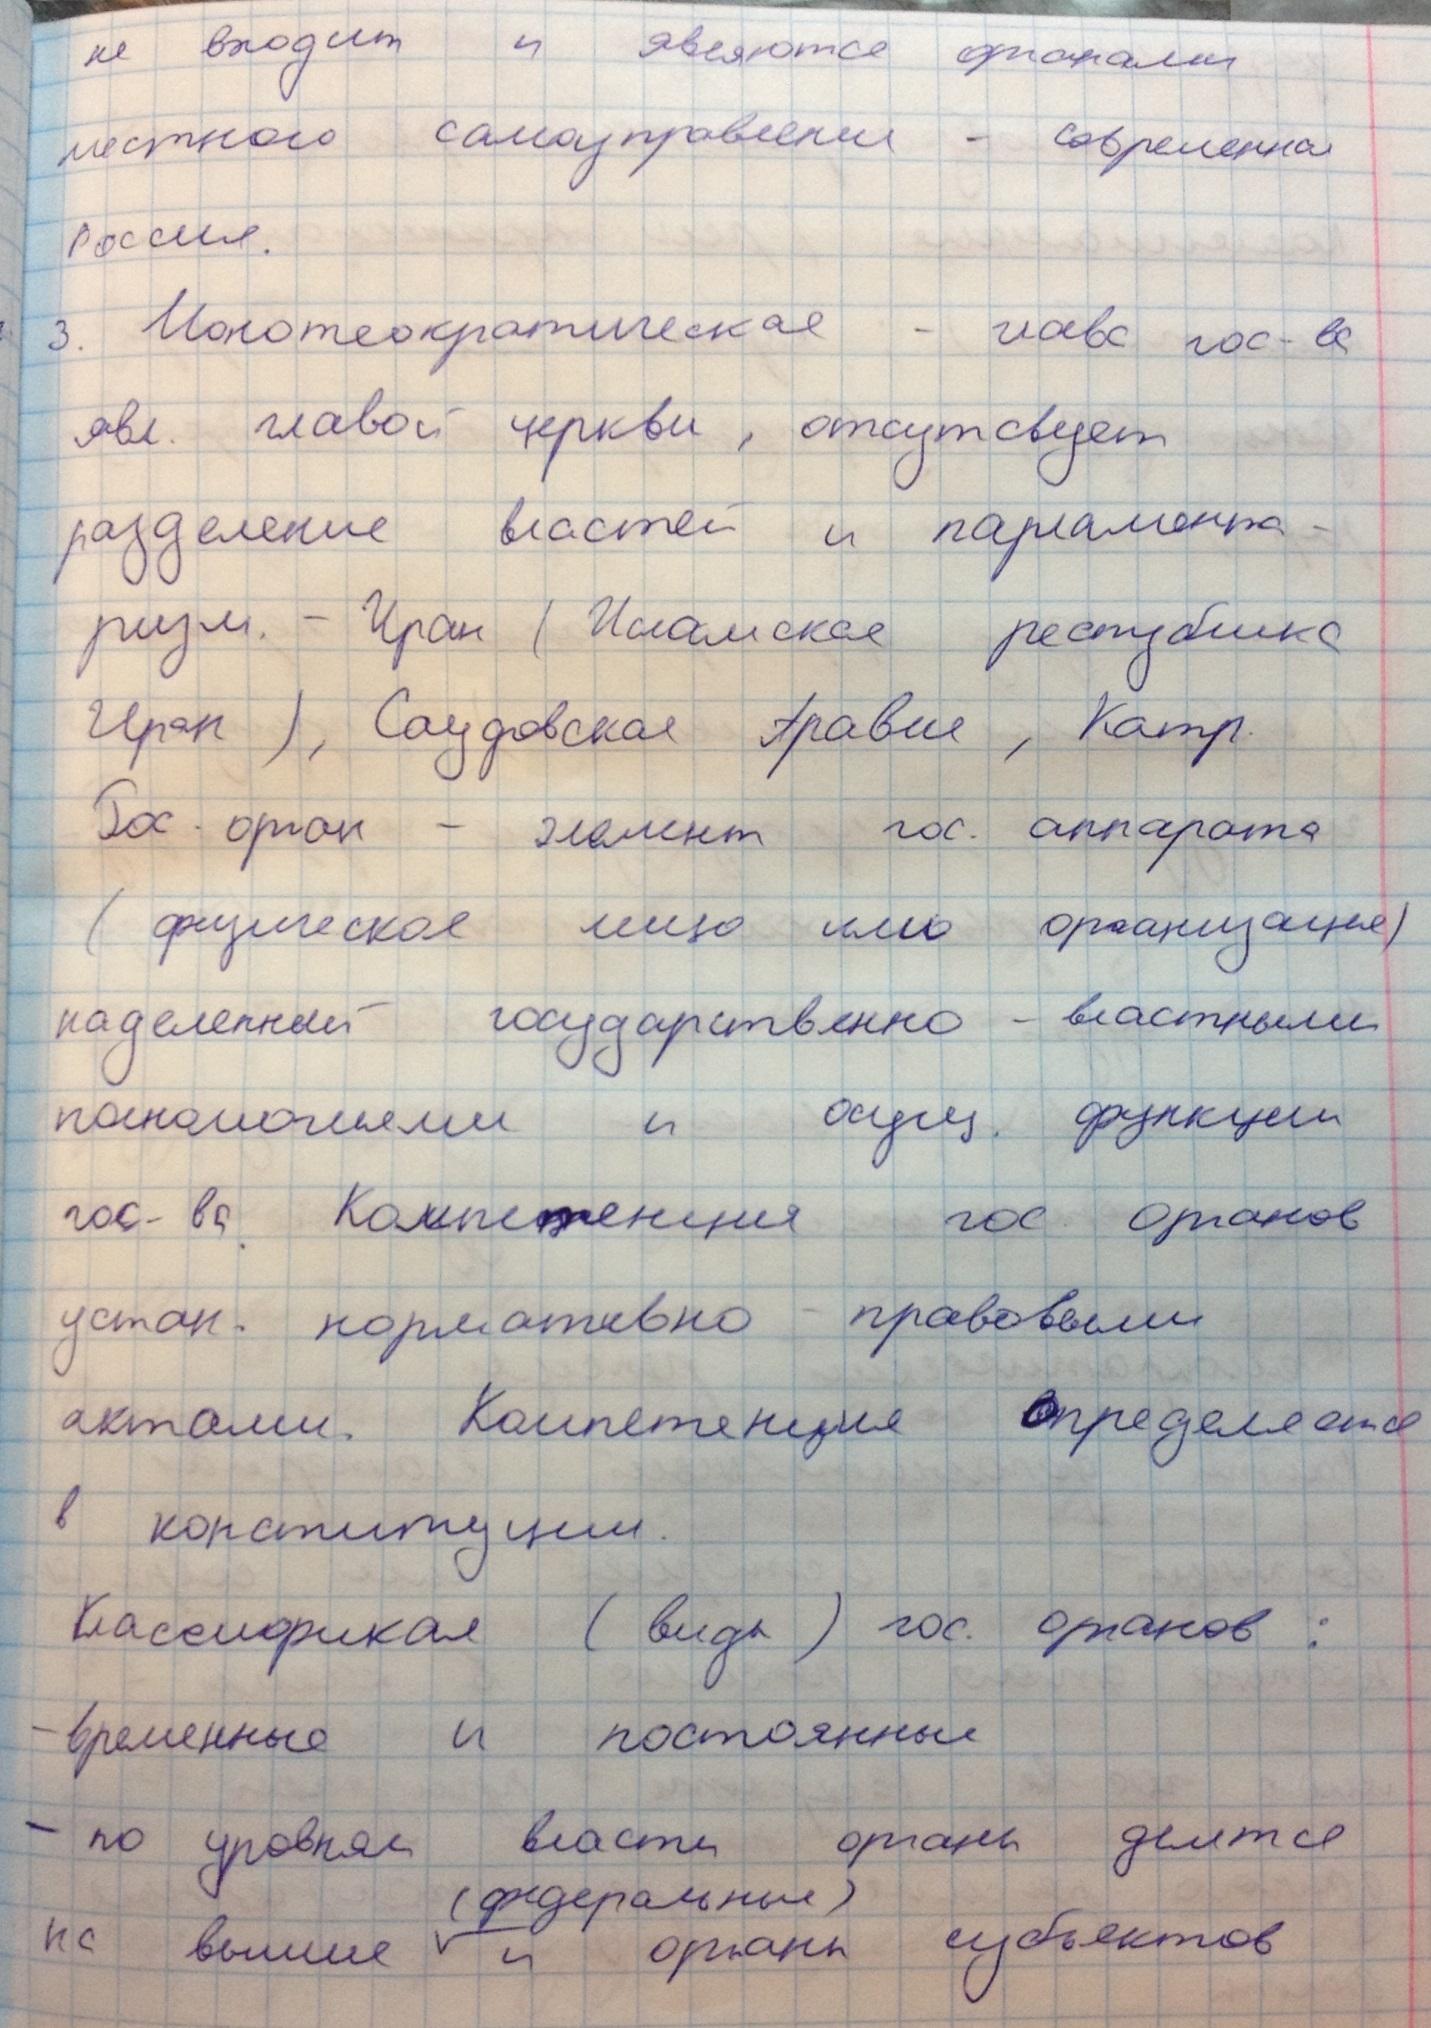 не входит и являются органами
местного самоуправления - современная
Россия.
3. Монотеократическая - глава гос-ва
явл. главой церкви, отсутсвует
разделение властей и парламента-
ризм. - Иран (Исламская республика
Иран), Саудовская Аравия, Катр.
Гос. орган - элемент гос. аппарата
(физическое лицо или организация)
наделенный государственно - властными
полномочиями и осущ. функции
гос-ва. Компетенция гос. органов
устан. норматевно - правовыми
актами. Компетенция определяется
в конституции.
Классификая (виды) гос. органов:
- временные и постоянные
- по уровням власти органы делятся
(федеральные)
на высшие и органы субъектов